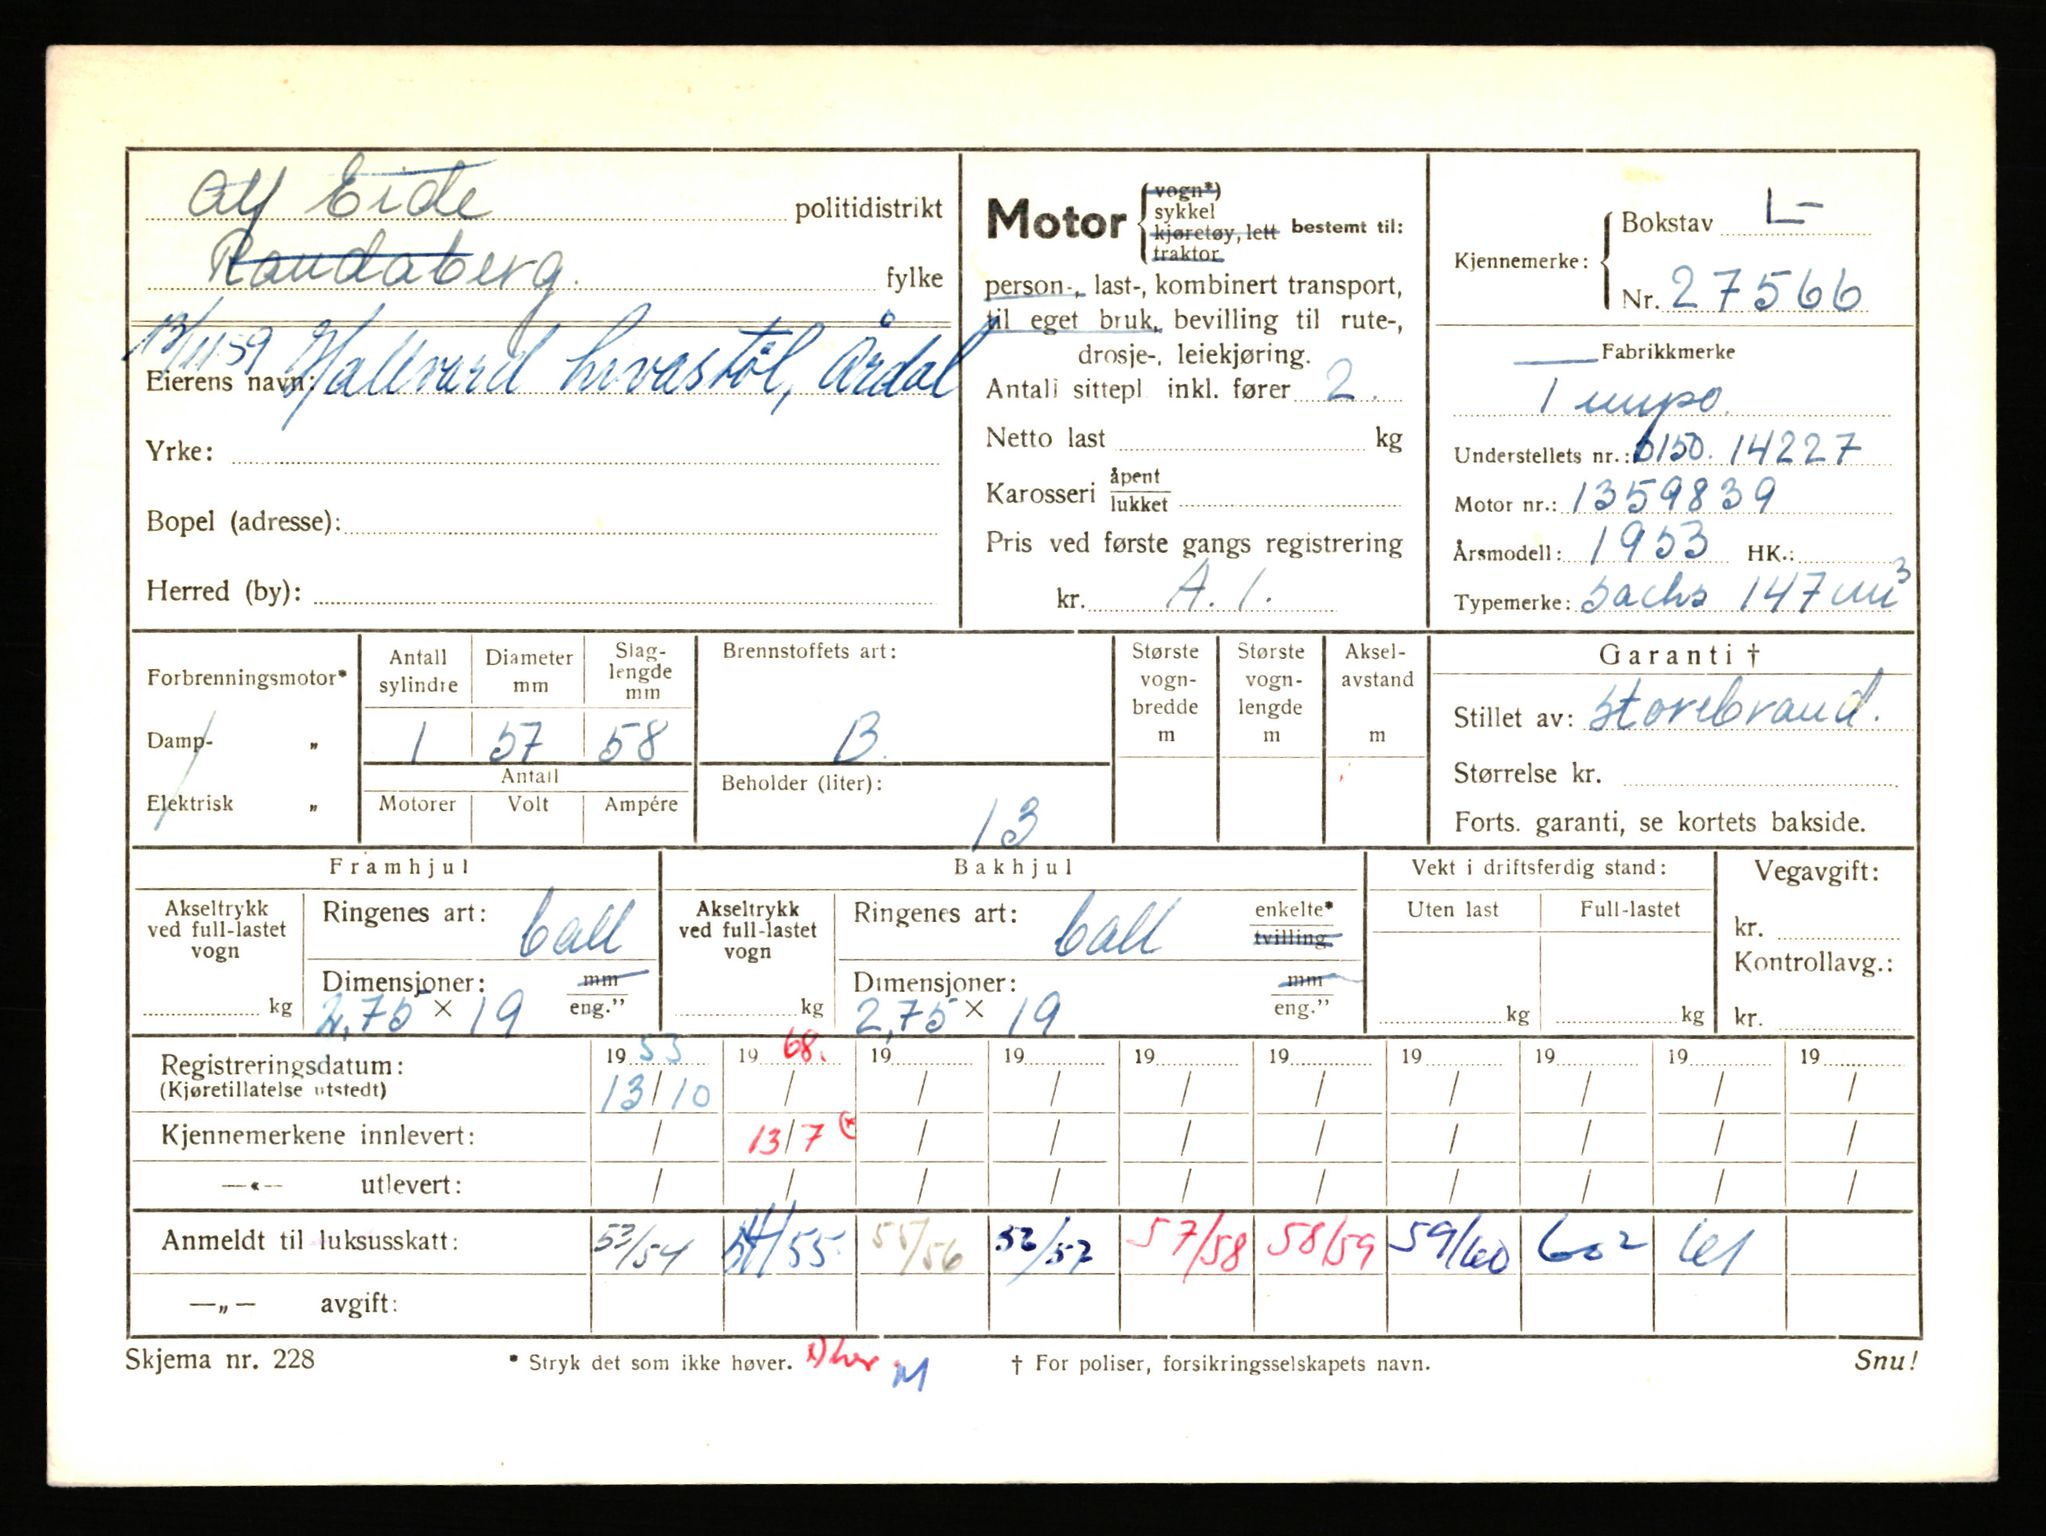 Alf Eide politidistrikt
Randaberg. fylke
13/11 59 Hallvard Årdal
Eierens navn:
Yrke:
Bopel (adresse):
Herred (by):
Motor { vogn*) sykkel kjøretøy, lett traktor bestemt til:
person-, last-, kombinert transport,
til eget bruk, bevilling til rute-,
drosje-, leiekjøring.
Antall sittepl inkl. fører 2.
Netto last kg
Karosseri åpent lukket
Pris ved første gangs registrering
kr. A. 1.
Kjennemerke: { Bokstav L-
Nr. 27566
Fabrikkmerke
Tempo
Understellets nr.: 6150. 14227
Motor nr.: 1359839
Årsmodell: 1953 HK.:
Typemerke: Sachs 147 cm³
Forbrenningsmotor*
Damp- „
Elektrisk „
Antall sylindre Diameter mm Slaglengde mm
1 57 58
Antall
Motorer Volt Ampére
Brennstoffets art:
B.
Beholder (liter):
13
Største vognbredde m
Største vognlengde m
Akselavstand m
Garanti †
Stillet av: Storebrand.
Størrelse kr.
Forts. garanti, se kortets bakside.
Framhjul
Akseltrykk ved full-lastet vogn
kg
Ringenes art: ball
Dimensjoner: mm
2,75 × 19 eng.”
Bakhjul
Akseltrykk ved full-lastet vogn
kg
Ringenes art: ball enkelte* tvilling
Dimensjoner: mm
2,75 × 19 eng.”
Vekt i driftsferdig stand:
Uten last Full-lastet
kg kg
Vegavgift:
kr.
Kontrollavg.:
kr.
Registreringsdatum: 19 53 19 68. 19 19 19 19 19 19 19 19
(Kjøretillatelse utstedt) 13/10 / / / / / / / / /
Kjennemerkene innlevert: / 13/7 (x / / / / / / / /
—«— utlevert: / / / / / / / / / /
Anmeldt til luksusskatt: 53/54 54/55 55/56 57/58 58/59 59/60 61
—„— avgift:
Skjema nr. 228 * Stryk det som ikke høver. † For poliser, forsikringsselskapets navn. Snu!